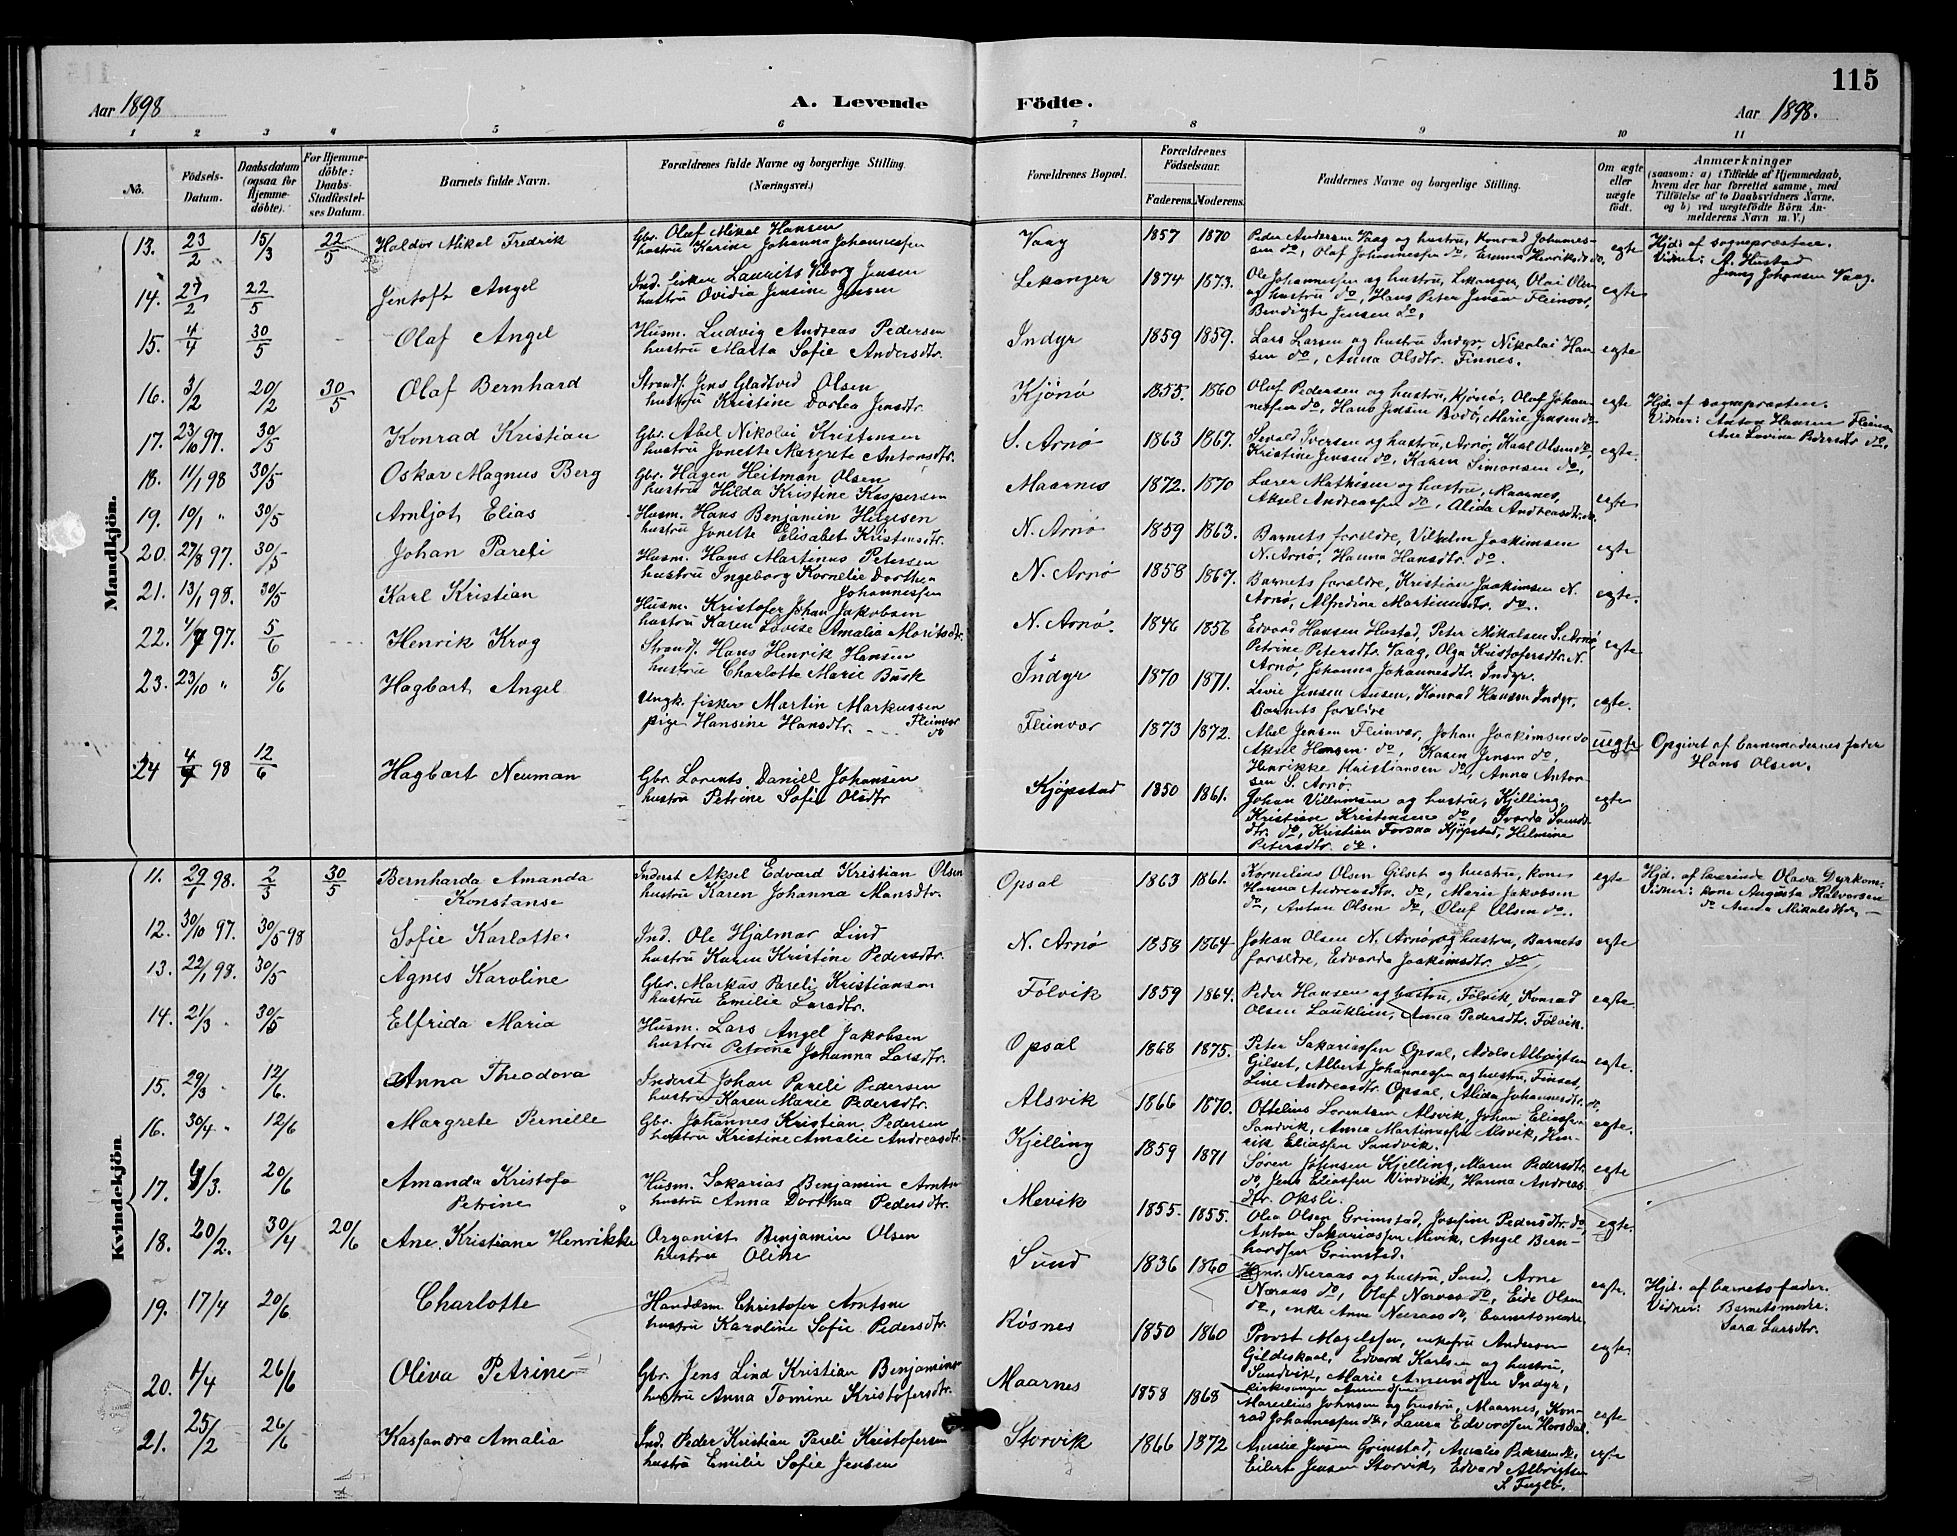 115
Aar 1898
A. Levende Födte.
Aar 1898.
1 2 3 4 5 6 7 8 9 10 11
No.
Födsels-Datum.
Daabsdatum (ogsaa for Hjemme-döbte).
For Hjemme-döbte: Daabs-Stadfæstel-ses Datum.
Barnets fulde Navn.
Forældrenes fulde Navne og borgerlige Stilling. (Næringsvei.)
Forældrenes Bopæl.
Forældrenes Födselsaar.
Faderens. Moderens.
Faddernes Navne og borgerlige Stilling.
Om ægte eller uægte födt.
Anmærkninger
(saasom: a) i Tilfælde af Hjemmedaab, hvem der har forrettet samme, med Tilföielse af to Daabsvidners Navne, og b) ved uægtefödte Börn An-melderens Navn m. V.)
Mandkjön.
13. 23/2 15/3 22/5 Haldor Mikal Fredrik
Gbr. Olaf Mikal Hansen
hustru Karine Johanna Johannessen
Vaag 1857 1870
Peder Andersen Vaag og hustru, Konrad Johannes-
sen do, Olaf Johannessen do, Emma Henriksdtr do.
egte
Hjd. af sognepræsten.
Vidner: A. Hustad
Jenny Johansen Vaag.
14. 27/2 22/5 Jentoft Angel
Ind. fisker Laurits Viborg Jensen
hustru Ovidia Jensine Jensen
Lekanger 1874 1873.
Ole Johannessen og hustru, Lekanger, Olai Olsen
og hustru do, Hans Peter Jensen Fleinvær,
Bendigte Jensen do.
egte
15. 4/4 30/5 Olaf Angel
Husm. Ludvig Andreas Pedersen
hustru Marta Sofie Andersdtr.
Indyr 1859 1859.
Lars Larsen og hustru Indyr, Nikolai Han
sen do, Anna Olsdtr. Finnes.
egte
16. 3/2 20/2 30/5 Olaf Bernhard
Strands. Jens Gladtved Olsen
hustru Kristine Dorlea Jensdtr.
Kjönö 1855. 1860
Olaf Pedersen og hustru, Kjönö, Olaf Johan
nessen do, Hans Jensen Bodö, Marie Jensen do
egte
Hjd. af sognepræsten.
Vidner: Anton Hansen Fleinvær
Ane Lovina Pedersdtr do.
17. 23/10 97. 30/5 Konrad Kristian
Gbr. Abel Nikolai Kristensen
hustru Jonette Margrete Antonsdtr.
S. Arnö 1863 1867.
Sevald Iversen og hustru, Arnö, Karl Olsen do,
Kristine Jensen do, Karen Simonsen do,
egte.
18. 11/1 98 30/5 Oskar Magnus Berg
Gbr. Hagen Heitman Olsen
hustru Hilda Kristine Kaspersen
Maarnes 1872. 1870
Lærer Mathisen og hustru, Maarnes,
Aksel Andreassen do, Alida Andreasdtr. do.
egte
19. 10/1 " 30/5 Arnljot Elias
Husm. Hans Benjamin Helgesen
hustru Jonette Elisabet Kristensdtr.
N. Arnö 1859 1863.
Barnets forældre, Vilhelm Joakimsen
N. Arnö, Hanna Hansdtr. do.
egte
20. 27/8 97. 30/5 Johan Pareli
Husm. Hans Martinus Petersen
hustru Ingeborg Kornelie Dorthea
Johannessen
N. Arnö 1858 1867.
Barnets forældre, Kristian Joakimsen N.
Arnö, Alfredine Martinusdtr. do.
egte.
21. 13/1 98. 30/5 Karl Kristian
Husm. Kristofer Johan Jakobsen
hustru Karen Lovise Amalia Moritsdtr.
N. Arnö. 1846 1856
Edvard Hansen Hustad, Peter Mikalsen S. Arnö,
Petrine Petersdtr. Vaag, Olga Kristofersdtr. N.
Arnö, Johanna Johannesdtr. Indyr.
egte
22. 4/7 97. 5/6 Henrik Krog
Strands. Hans Henrik Hansen
hustru Charlotta Marie Busk
Indyr 1870 1871.
Levie Jensen Ansen, Konrad Hansen Indyr,
Barnets forældre
egte.
23. 23/10 " 5/6 Hagbart Angel
Ungk. fisker Martin Markussen Fleinvær
pige Hansine Hansdtr. do
Fleinvær 1873 1872.
Abel Jensen Fleinvær, Johan Joakimsen do
Aksel Hansen do, Karen Jensen do,
Henrikke Kristiansen do, Anna Anton-
sen S. Arnö.
uegte
Opgivet af barnemoderens fader
Hans Olsen.
24 4/4 98 12/6 Hagbart Neuman
Gbr. Lorents Daniel Johansen
hustru Petrine Sofie Olsdtr
Kjöpstad 1850 1861.
Johan Villumsen og hustru, Kjelling,
Kristian Kristensen do, Gvarda Svends
dtr. do, Kristian Forsaa Kjöpstad, Helmine
Petersdtr. do.
egte
Kvindekjön
11. 29/1 98. 2/3 30/5 Bernharda Amanda
Konstanse
Inderst Aksel Edvard Kristian Olsen
hustru Karen Johanna Mansdtr.
Opsal 1863 1861.
Kornelius Olsen Gilset og hustru, kone
Hanna Andreasdtr. do, Marie Jakobsen
do, Anton Olsen do, Oluf Olsen do.
egte
Hjd. af lærerinde Olava Dyrkorn.
Vidner: kone Augusta Halvorsen
do Anna Mikalsdtr.
12. 30/10 97. 30/5 98 Sofie Karlotte
Ind. Ole Hjalmar Lind
hustru Karen Kristine Pedersdtr.
N. Arnö 1858 1864
Johan Olsen N. Arnö og hustru, Barnets
forældre, Edvarda Joakimsdtr. do
egte
13. 22/1 98. 30/5 Agnes Karoline
Gbr. Markus Pareli Kristiansen
hustru Emilie Larsdtr.
Fölvik 1859 1864.
Peder Hansen og hustru, Fölvik, Konrad
Olsen Lauklien, Anna Pedersdtr. Fölvik.
egte
14. 21/3 30/5 Elfrida Maria
Husm. Lars Angel Jakobsen
hustru Petrine Johanna Larsdtr.
Opsal 1868 1875.
Peter Sakariassen Opsal, Adolf Albrigtsen
Gilset, Albert Johannessen og hustru, Finset,
Line Andreasdtr. Opsal, Alida Johannesdtr. do.
egte.
15. 29/3 12/6. Anna Theodora
Inderst Johan Pareli Pedersen
hustru Karen Marie Pedersdtr.
Alsvik 1866 1870.
Ottelius Lorentsen Alsvik, Johan Eliassen
Sandvik, Anna Martinussen Alsvik, Hen-
rik Eliassen Sandvik.
egte.
16. 30/4 " 12/6 Margrete Pernille
Gbr. Johannes Kristian Pedersen
hustru Kristine Amalie Andreasdtr.
Kjelling 1859 1871
Sören Johnsen Kjelling, Maren Pedersdtr.
do, Jens Eliassen Vindvik, Hanna Andreas
dtr. Oksli.
egte
17. 9/3. 20/6 Amanda Kristofa
Petrine
Husm. Sakarias Benjamin Arntsen
hustru Anna Dorthea Pedersdtr.
Mevik 1855. 1855.
Olea Olsen Grimstad, Josefine Pedersdtr. do,
Anton Sakariassen Mevik, Angel Bern-
hardsen Grimstad.
egte.
18. 20/2. 30/4 20/6 Ane Kristiane Henrikke
Organist Benjamin Olsen
hustru Oline
Sund 1836 1860
Hjd. af barnets fader.
Vidner: Barnets moder.
Sara Larsdtr.
egte.
19. 17/4 20/6 Charlotte
Handelsm. Christofer Arntsen
hustru Karoline Sofie Pedersdtr.
Rösnes 1850 1860
Provst Magelssen, enkefru Andersen
Gildeskaal, Edvard Karlsen og hustru,
Sandvik, Marie Amundsen Indyr,
kirkesanger Amundsen
egte.
20. 1/4 26/6 Oliva Petrine
Gbr. Jens Lind Kristian Benjaminsen
hustru Anna Tomine Kristofersdtr.
Maarnes 1858 1868
Marcelius Johnsen og hustru, Maarnes, Kon-
rad Johannessen do, Laura Edvardsen Horsdal.
egte
21. 25/2 26/6 Kassandra Amalia
Ind. Peder Kristian Pareli Kristofersen
hustru Emilie Sofie Jensen
Storvik 1866 1872
Amalie Jensen Grimstad, Amalie Pedersen do,
Eilert Jensen Storvik, Edvard Albrigtsen
S. Fuglö.
egte